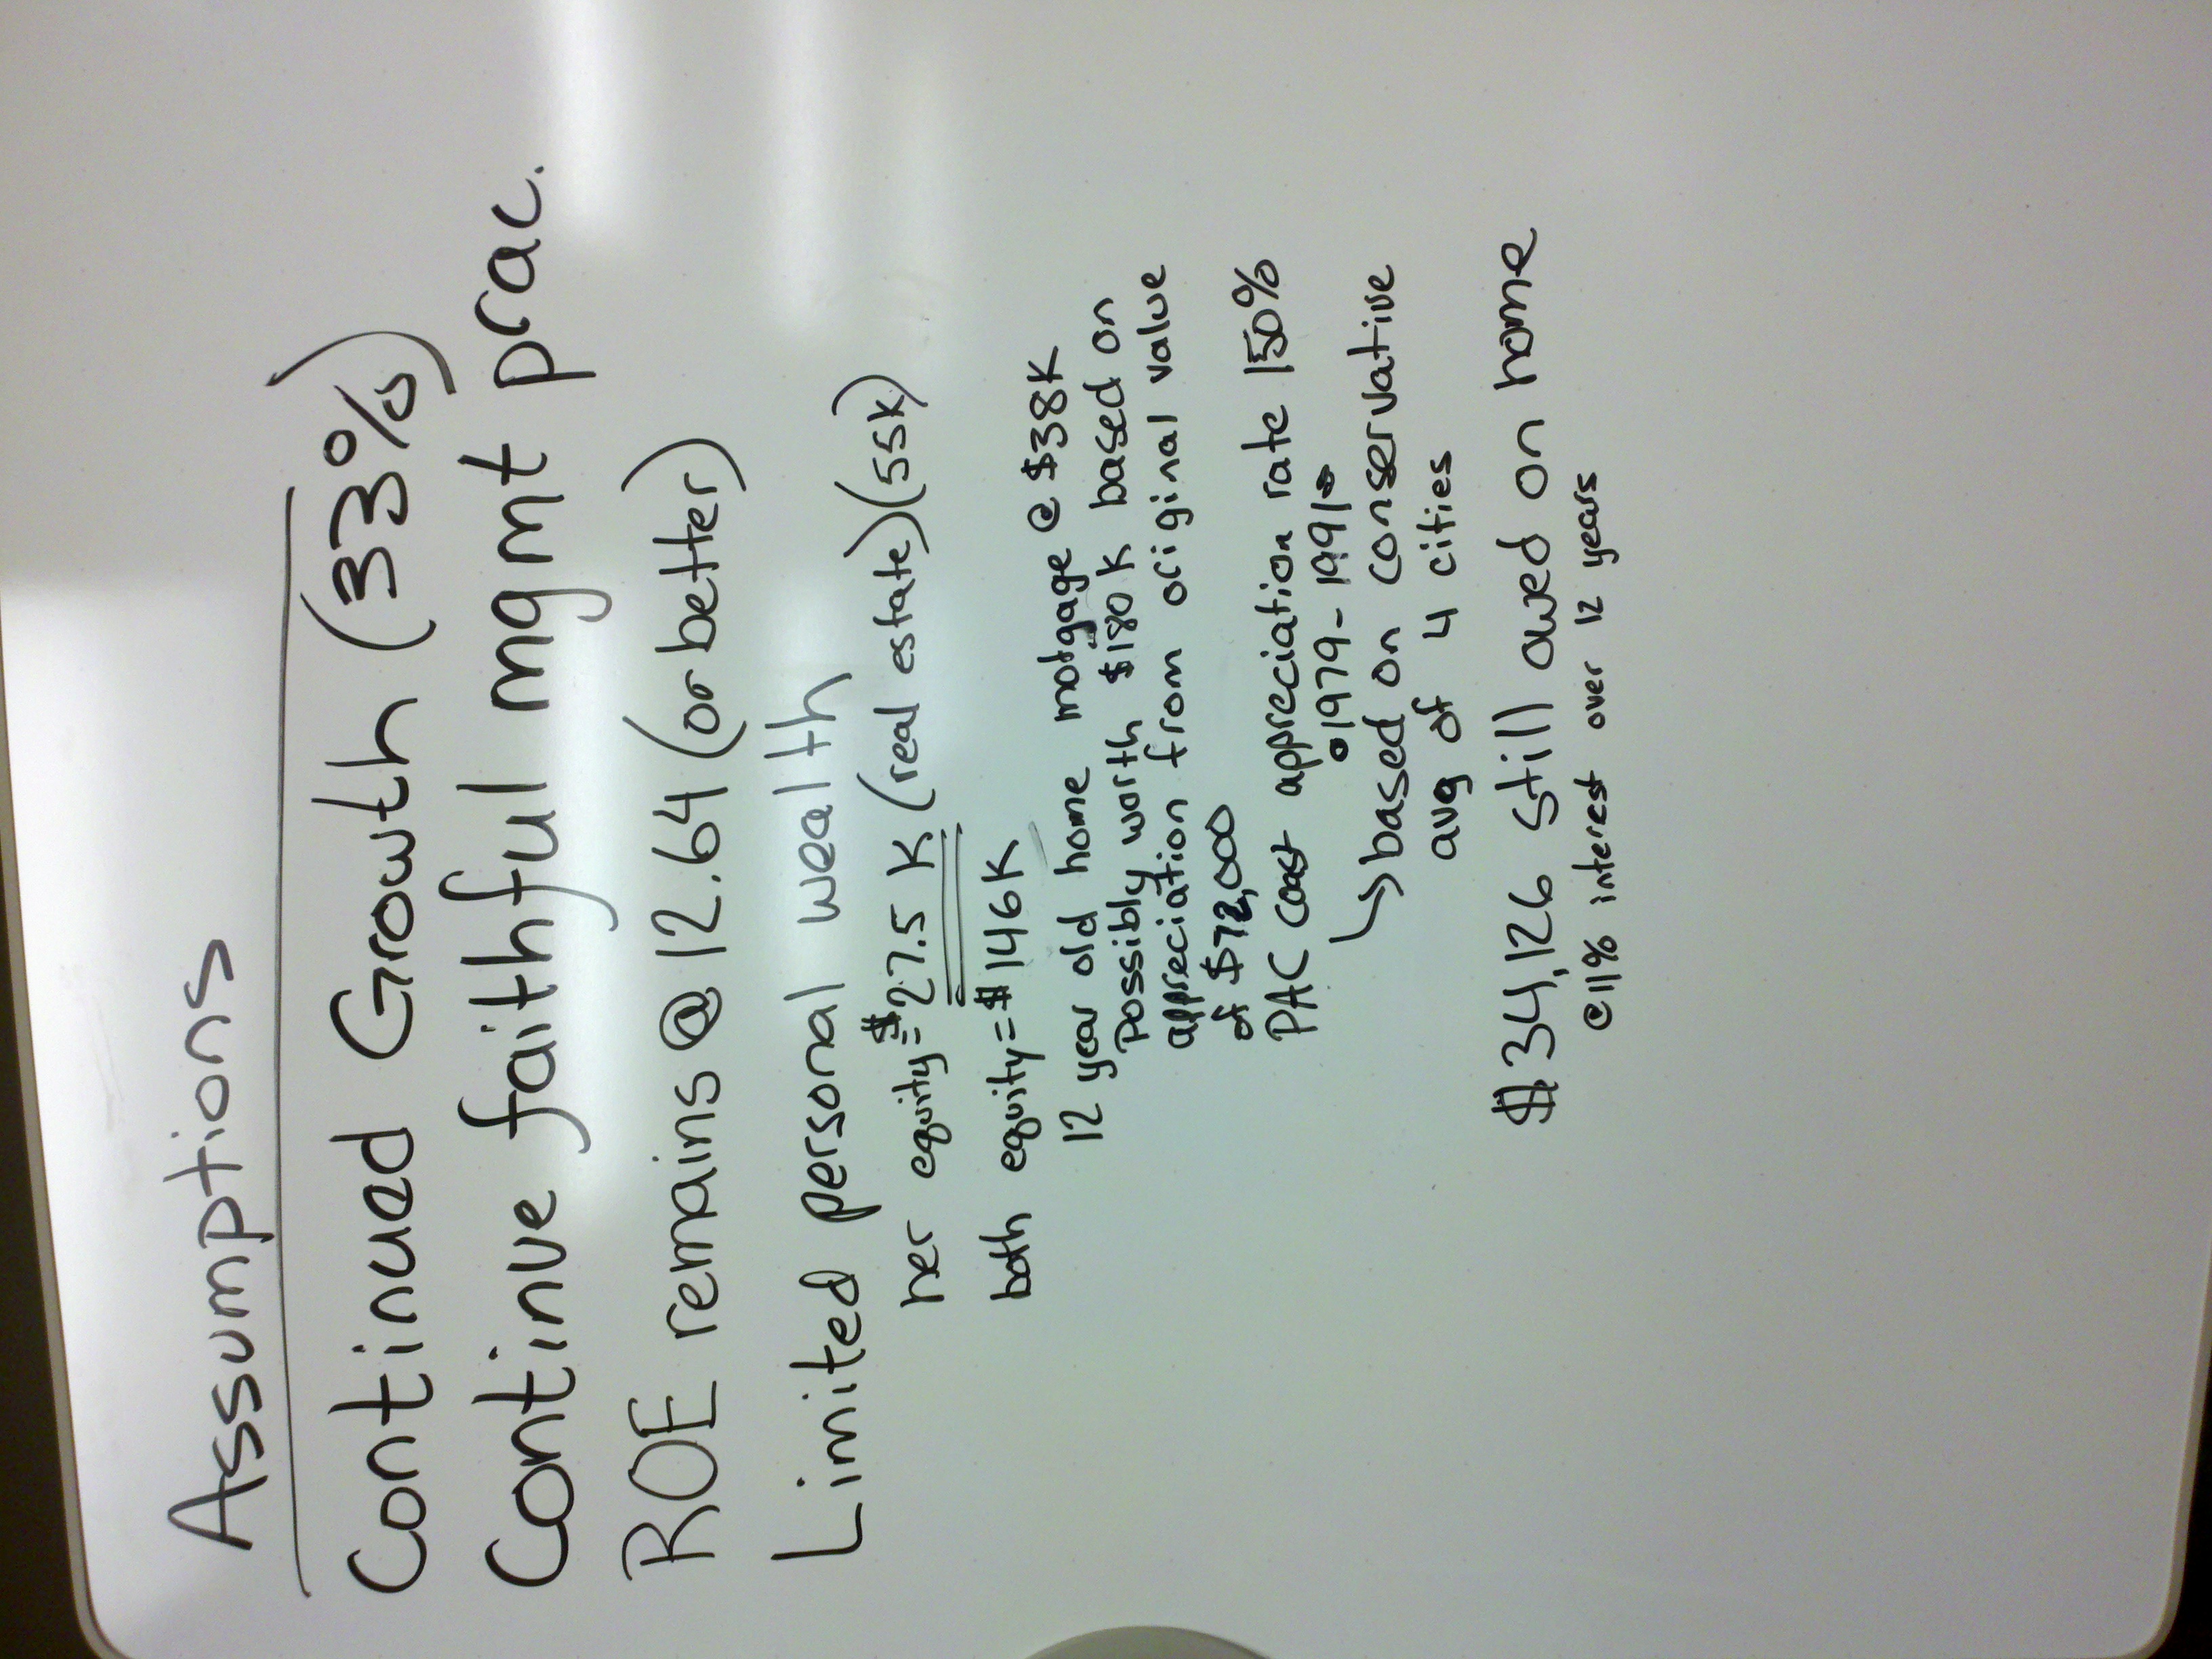 Assumptions
Continued Growth (33%)
Continue faithful mgmt prac.
ROE remains @ 12.64 (or better)
Limited personal wealth
her equity = $27.5 K (real estate)(55K)
both equity = $146K
12 year old home motgage @ $38K
Possibly worth $180K based on
appreciation from original value
of $72,000
PAC coast appreciation rate 150%
1979-1991
↳ based on conservative
avg of 4 cities
$34,126 still owed on home
@11% interest over 12 years